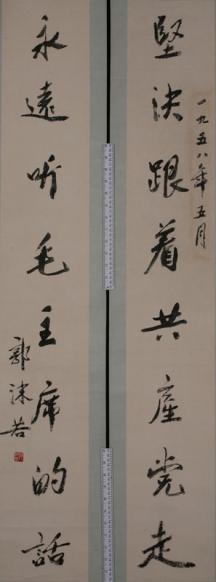 一九五八年五月
坚决跟着共產党走
永遠听毛主席的話
郭沫若